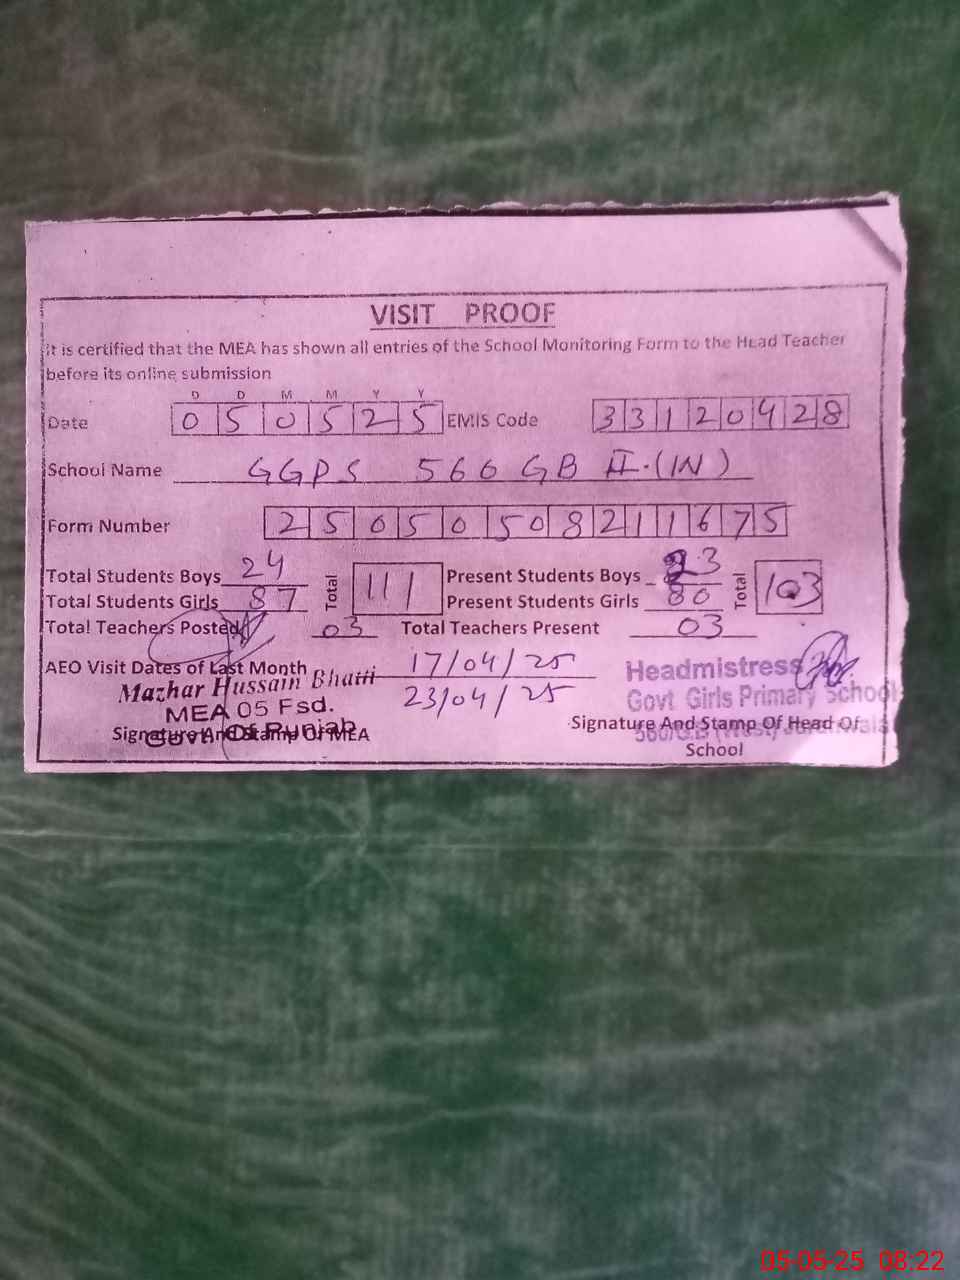 VISIT PROOF
It is certified that the MEA has shown all entries of the School Monitoring Form to the Head Teacher
before its online submission
D D M M Y Y
Date 0 5 0 5 2 5 EMIS Code 3 3 1 2 0 4 2 8
School Name GGPS 560 GB II.(IN)
Form Number 2 5 0 5 0 5 0 8 2 1 1 6 7 5
Total Students Boys 24 Total 111 Present Students Boys 23 Total 103
Total Students Girls 87 Present Students Girls 80
Total Teachers Posted 03 Total Teachers Present 03
AEO Visit Dates of Last Month 17/04/25
23/04/25
Mazhar Hussain Bhatti
MEA 05 Fsd.
Govt. Of Punjab
Signature And Stamp Of MEA
Headmistress
Govt Girls Primary School
560/G.B (West)
Signature And Stamp Of Head Of
School
05-05-25 08:22